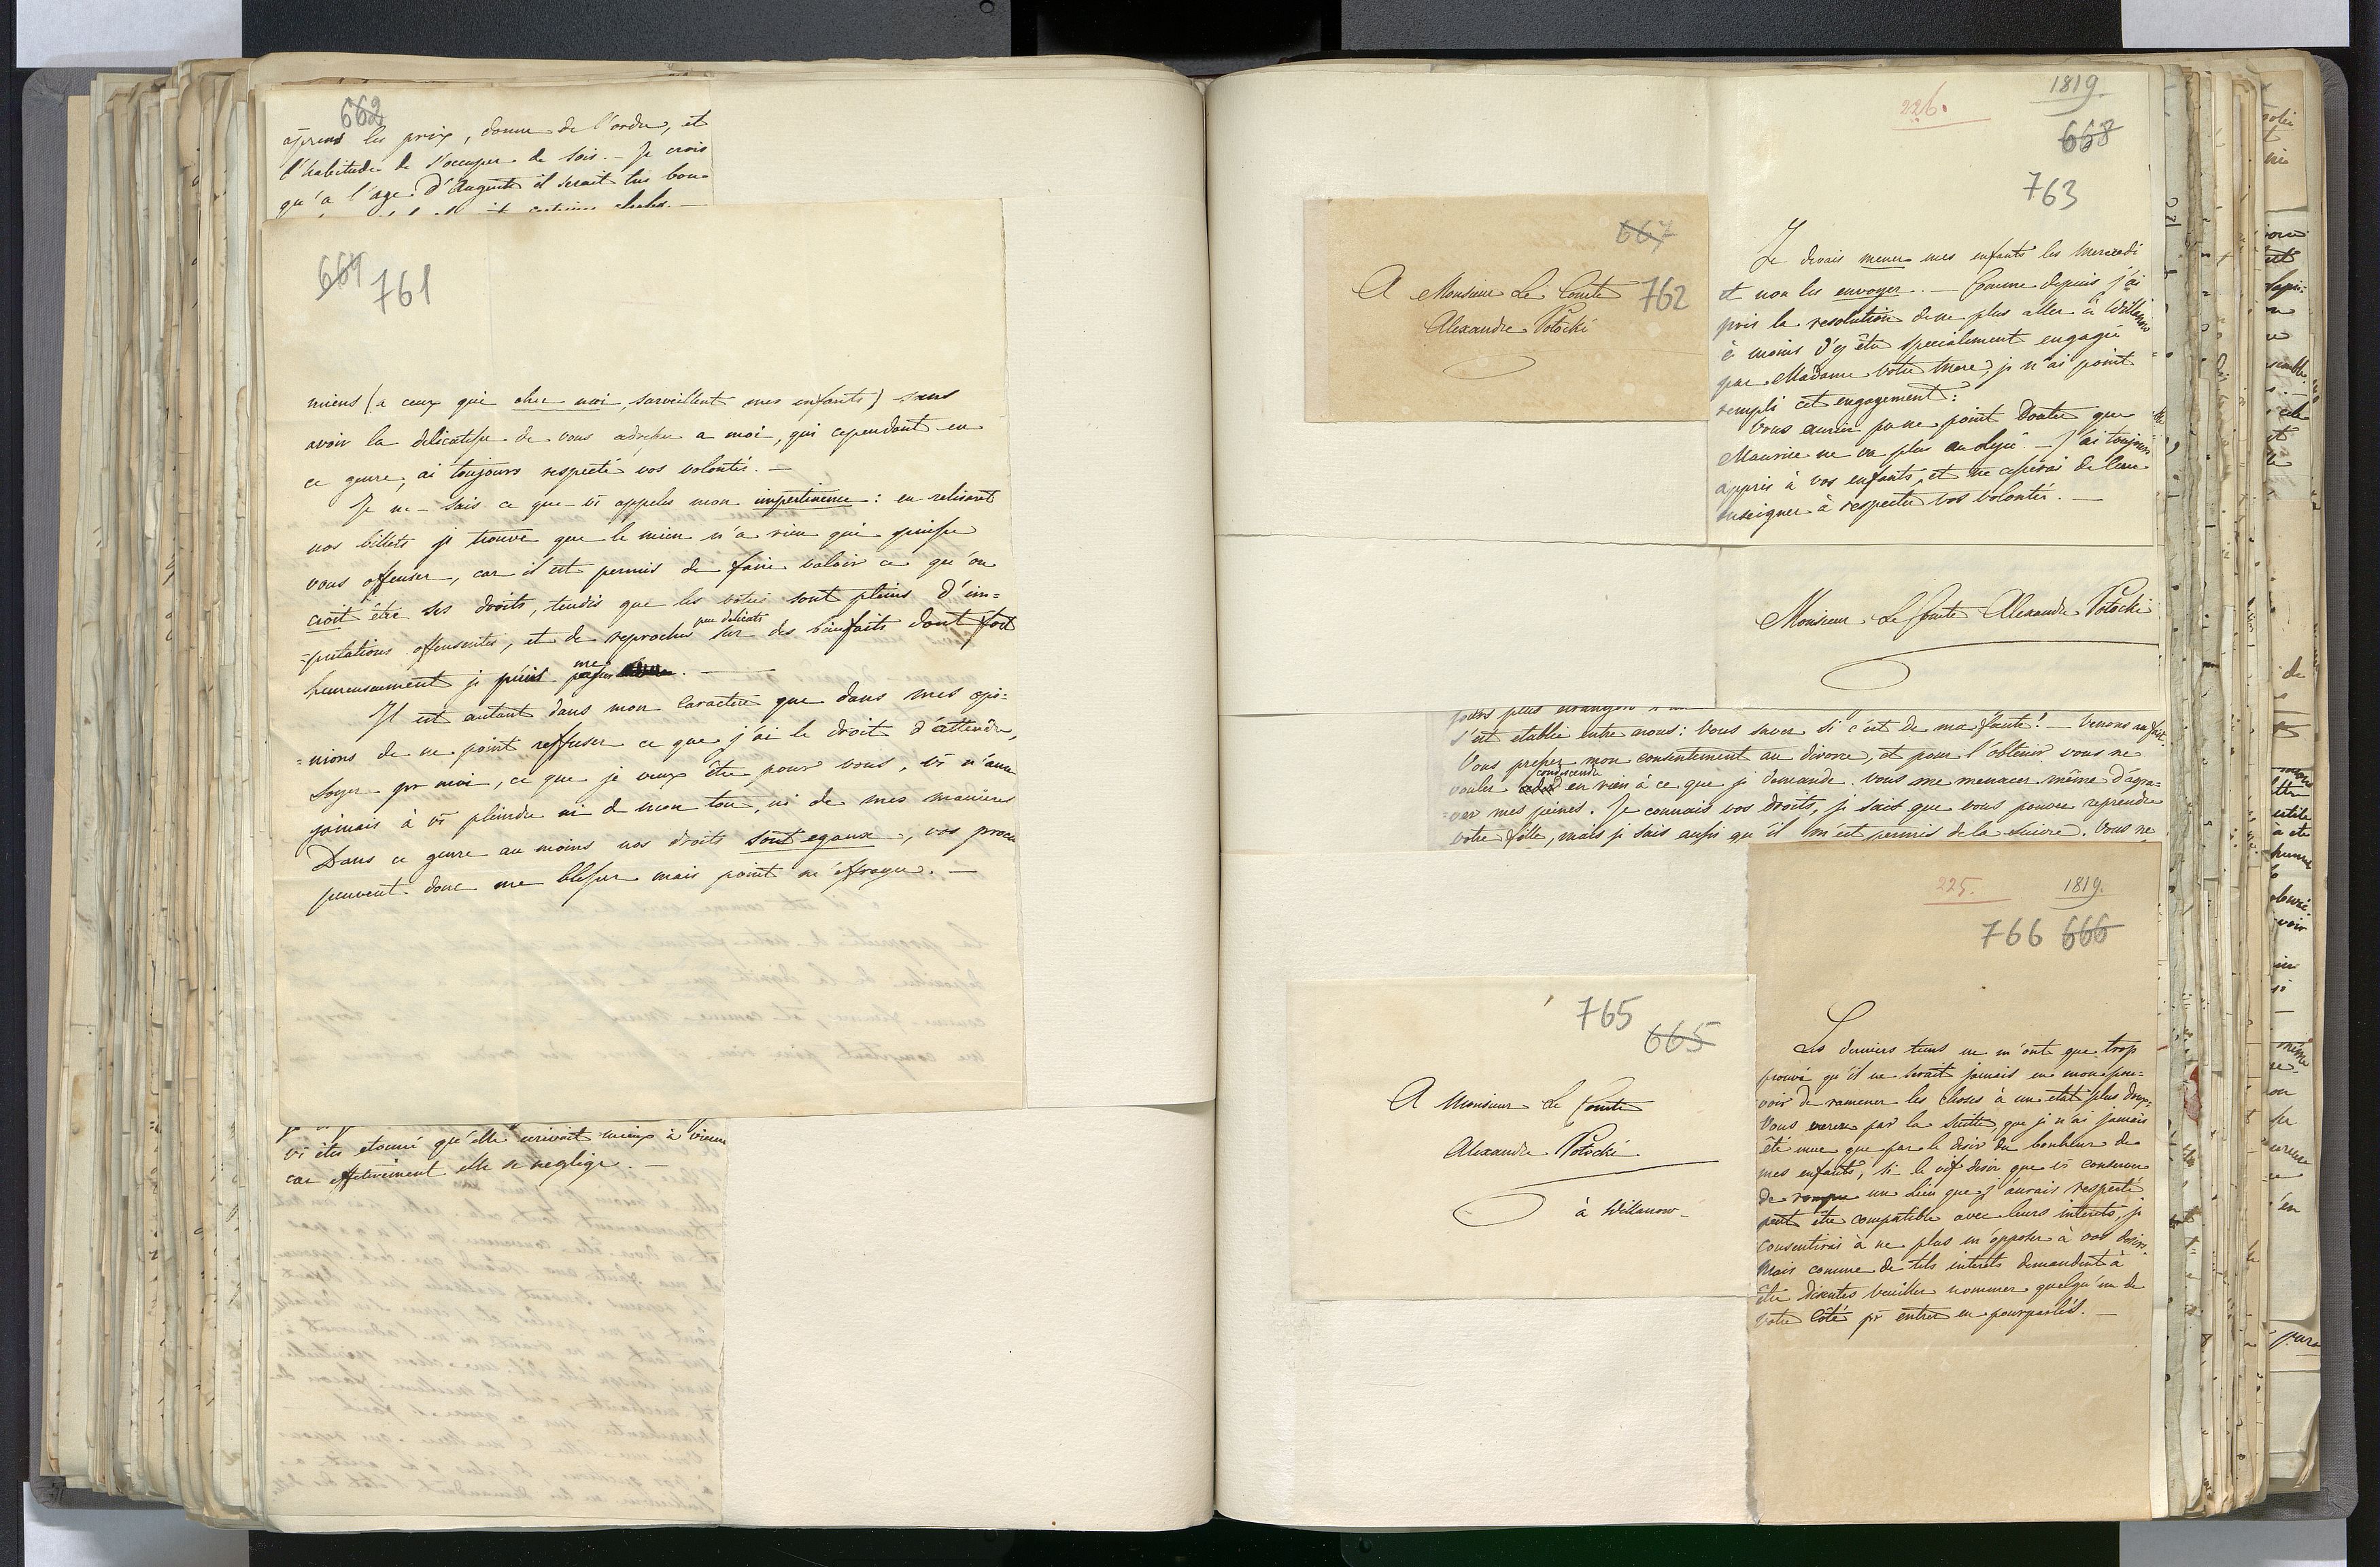 662
aprend les prix, donne de l'ordre, et
l'habitude de s'occuper de soi. – Je crois
qu'a l'age d'Auguste il serait tres bon
664 761
miens (a ceux qui chez moi, surveillent mes enfants) sans
avoir la delicatesse de vous adresser a moi, qui cependant en
ce genre, ai toujours respecté vos volontés. –
Je ne sais ce que vs appelez mon impertinence : en relisant
nos billets je trouve que le mien n'a rien qui puisse
vous offenser, car il est permis de faire valoir ce qu'on
croit être ses droits, tandis que les votres sont pleins d'im=
=putations offensentes, et de reproches peu delicats sur des bienfaits dont fort
heureusement je puis me passer. –
Il est autant dans mon caractere que dans mes opi=
=nions de ne point reffuser ce que j'ai le droit d'attendre,
soyez pr moi, ce que je veux être pour vous, vs n'aurez
jamais à vs pleindre ni de mon ton, ni de mes manieres
Dans ce genre au moins nos droits sont egaux, vos
peuvent donc me blesser mais point m'effrayer. –
vs etes etonné qu'elle ecrivait mieux à
car effectivement elle se neglige. –
667
A Monsieur Le Comte 762
Alexandre Potocki
226. 1819.
668
763
Je devais mener mes enfants les mercredi
et non les envoyer. – Comme depuis j'ai
pris la resolution de ne plus aller à Willanow
à moins d'y être specialement engagée
par Madame votre mere, je n'ai point
rempli cet engagement :
Vous auriez pu ne point douter que
Maurice ne va plus au – J'ai toujours
appris à vos enfants, et ne cesserai de leur
enseigner à respecter vos volontés. –
Monsieur Le Comte Alexandre Potocki
jours plus
s'est etablie entre nous : vous savez si c'est de ma faute ! – Venons au fait.
Vous pressez mon consentement au divorce, et pour l'obtenir vous ne
voulez condescendre en rien à ce que je demande. vous me menacez même d'agra=
=ver mes peines. Je connais vos droits, je sais que vous pouvez reprendre
votre fille, mais je sais aussi qu'il m'est permis de la suivre. Vous ne
225. 1819.
766 666
Les derniers tems ne m'ont que trop
prouvé qu'il ne serait jamais en mon pou=
voir de ramener les choses à un etat plus doux.
Vous verrez par la suitte, que je n'ai jamais
été mue que par le desir du bonheur de
mes enfants, si le vif desir que vs conservez
de rompre un lien que j'aurais respecté
peut être compatible avec leurs interets, je
consentirai à ne plus m'opposer à vos desirs.
Mais comme de tels interets demandent à
être discutés veuillez nommer quelqu'un de
votre côté pr entrer en pourparlés. –
765
665
A Monsieur Le Comte
Alexandre Potocki
à Willanow